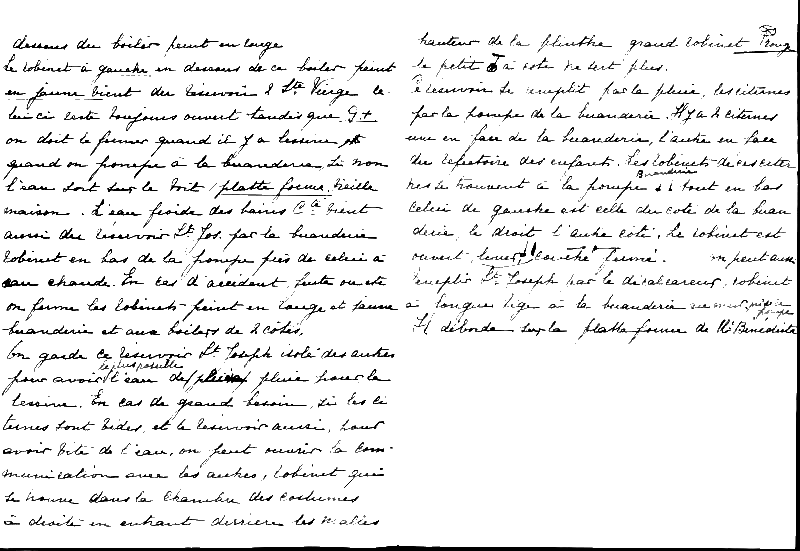 dessous du boiler peint en rouge
Le robinet à gauche en dessous de ce boiler peint
en jaune vient du réservoir & Ste Vierge ce-
lui ci reste toujours ouvert tandis que G+
on doit le fermer quand il y a lessive et
quand on pompe à la buanderie, si non
l'eau sort sur le toit / platte forme vieille
maison. L'eau froide des bains Cté vient
aussi du réservoir St Jos. par la buanderie
robinet en bas de la pompe près de celui à
eau chaude. En cas d'accident, fuite ou etc
on ferme les robinets peint en rouge et jaune
buanderie et aux boilers de 2 cotés.
On garde ce réservoir St Joseph isolé des autres
pour avoir le plus possible l'eau de pluie pour la
lessive. En cas de grand besoin, si les ci
ternes sont vides, et le réservoir aussi, pour
avoir vite de l'eau, on peut ouvrir la com-
munication avec les autres, robinet qui
se trouve dans la chambre des costumes
à droite en entrant derrière les malles
hauteur de la plinthe grand robinet Rouge
le petit à coté ne sert plus.
Ce réservoir se remplit par la pluie, les citernes
par la pompe de la buanderie. Il y a 2 citernes
une en face de la buanderie, l'autre en face
du réfectoire des enfants. Les robinets de ces citer
nes se trouvent à la pompe Buanderie tout en bas
celui de gauche est celle du coté de la buan
derie, le droit l'autre coté. Le robinet est
ouvert levé, couché fermé. On peut aussi
remplir St Joseph par le décalcareur, robinet
à longue tige à la buanderie au mur, près de la pompe
Il déborde sur la platte forme de M. Bénédicte